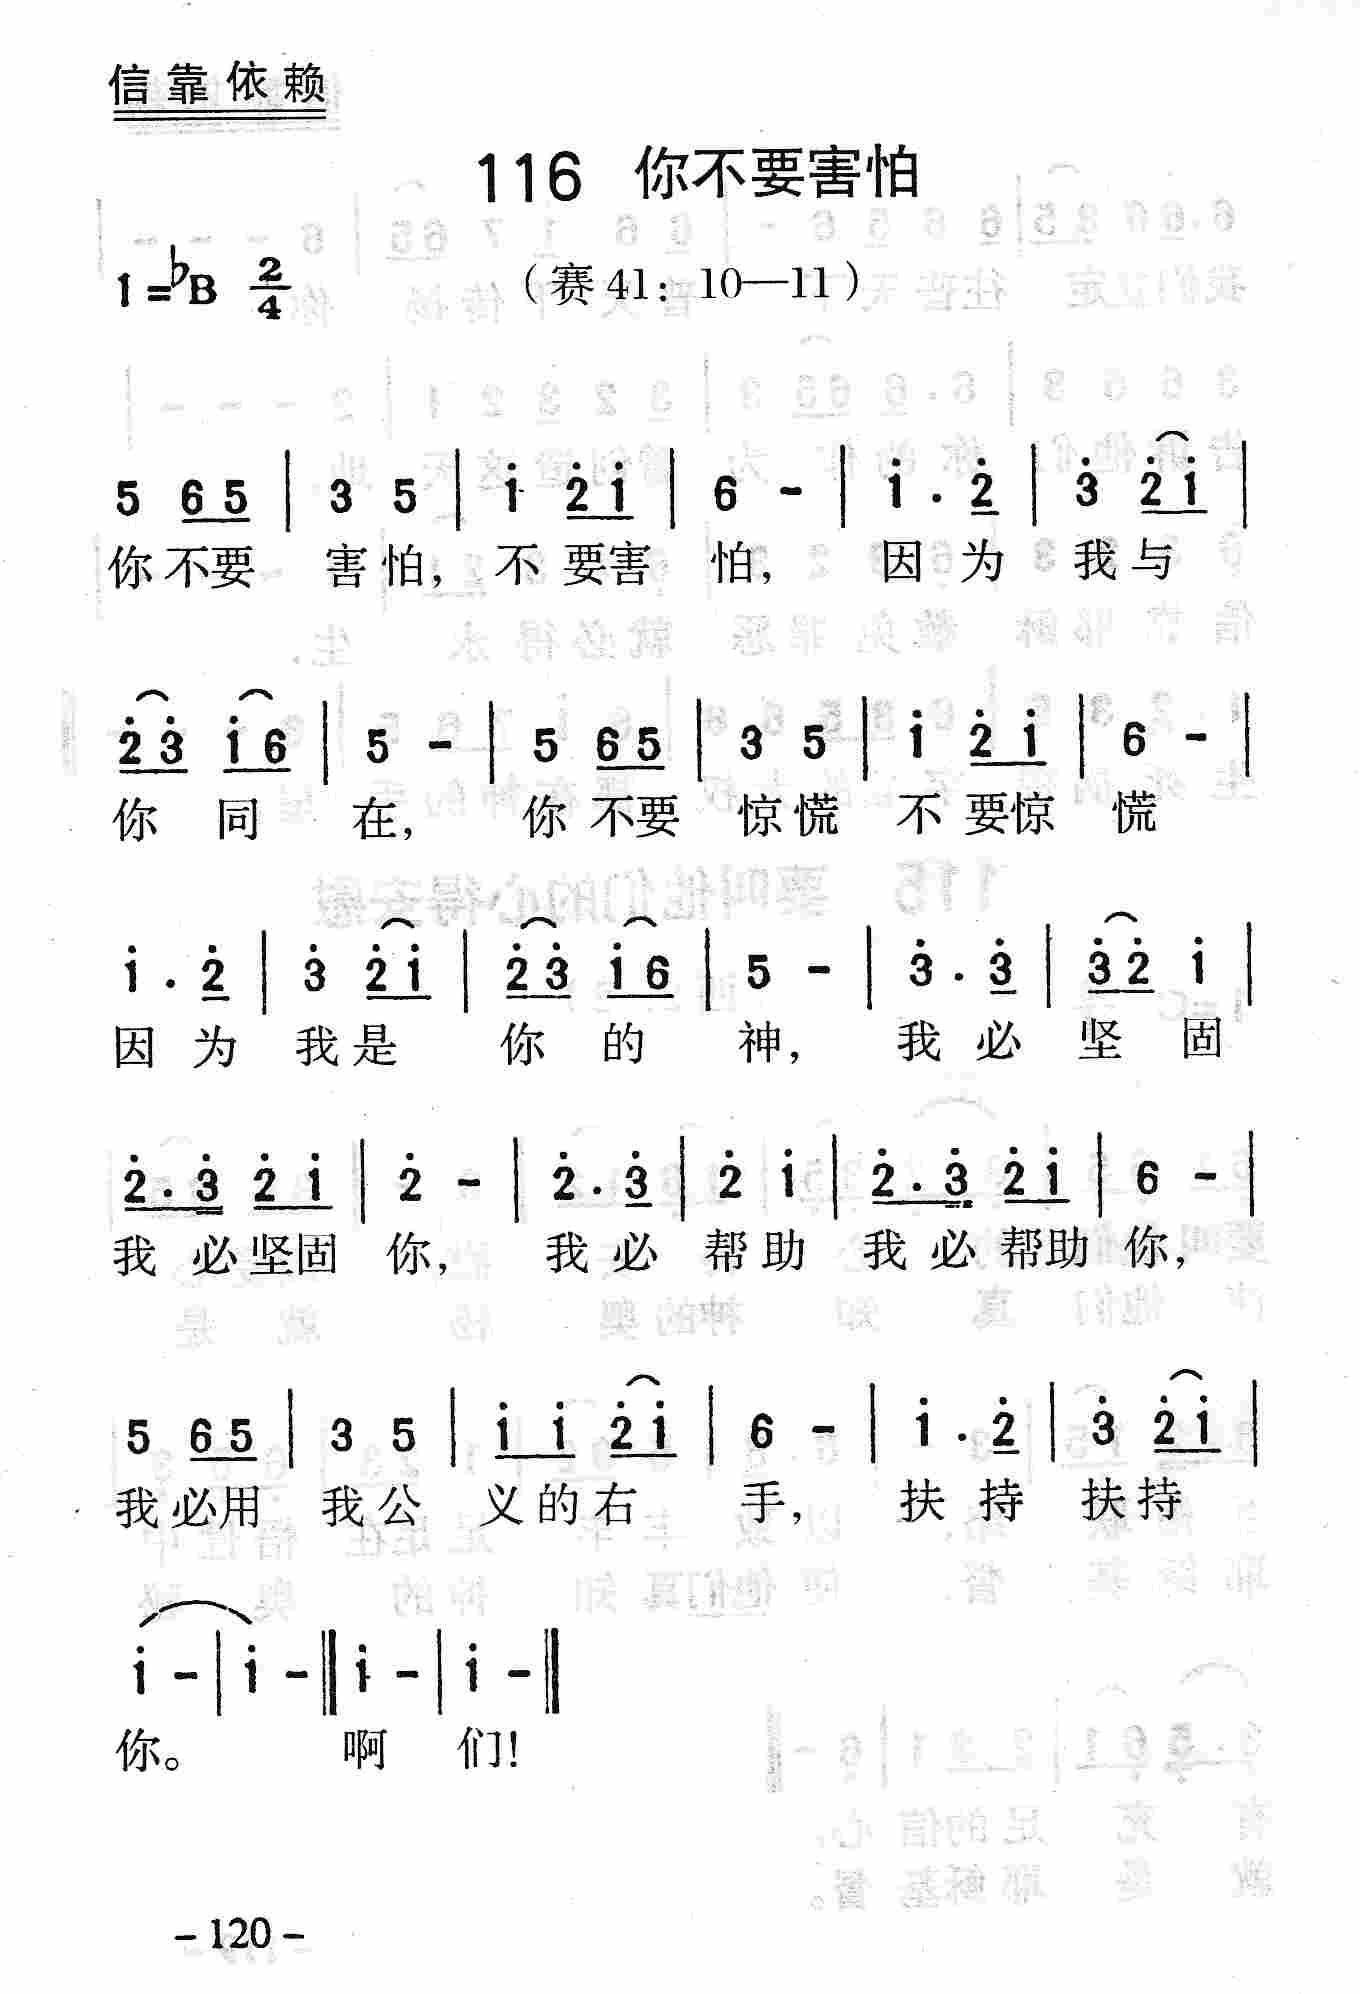 信靠依赖
116 你不要害怕
1=♭B 2/4 （赛41：10—11）
5 65 | 3 5 | i 2̇i | 6 - | i . 2̇ | 3̇ 2̇i |
你 不要 害怕， 不 要害 怕， 因 为 我与
2̇3̇ i6 | 5 - | 5 65 | 3 5 | i 2̇i | 6 - |
你 同 在， 你 不要 惊慌 不 要惊 慌
i . 2̇ | 3̇ 2̇i | 2̇3̇ i6 | 5 - | 3̇ . 3̇ | 3̇2̇ i |
因 为 我是 你 的 神， 我 必 坚 固
2̇.3̇ 2̇i | 2̇ - | 2̇.3̇ | 2̇ i | 2̇.3̇ 2̇i | 6 - |
我 必坚固 你， 我 必 帮助 我 必帮助 你，
5 65 | 3 5 | i i 2̇i | 6 - | i . 2̇ | 3̇ 2̇i |
我必用 我公 义的右 手， 扶 持 扶持
i - | i - ‖ i - | i - ‖
你。 啊 们！
- 120 -